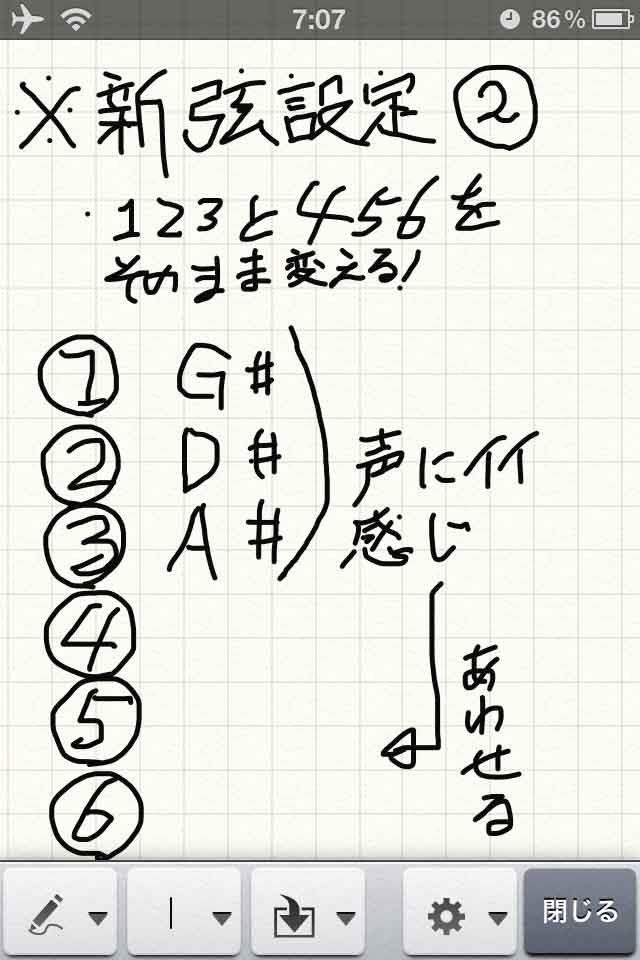 7:07 86%
※新弦設定②
・123と456を
そのまま変える!
① G#
② D# 声にイイ
③ A# 感じ
④
⑤
⑥
あわせる
閉じる